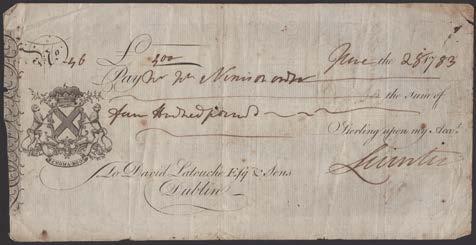 No. 46 £ 400 June the 28 1783
Pay Mr or order
the sum of
four Hundred pounds
Sterling upon my Acct.
Leinster
CROM A BOO
To David Latouche Esqr & Sons
Dublin